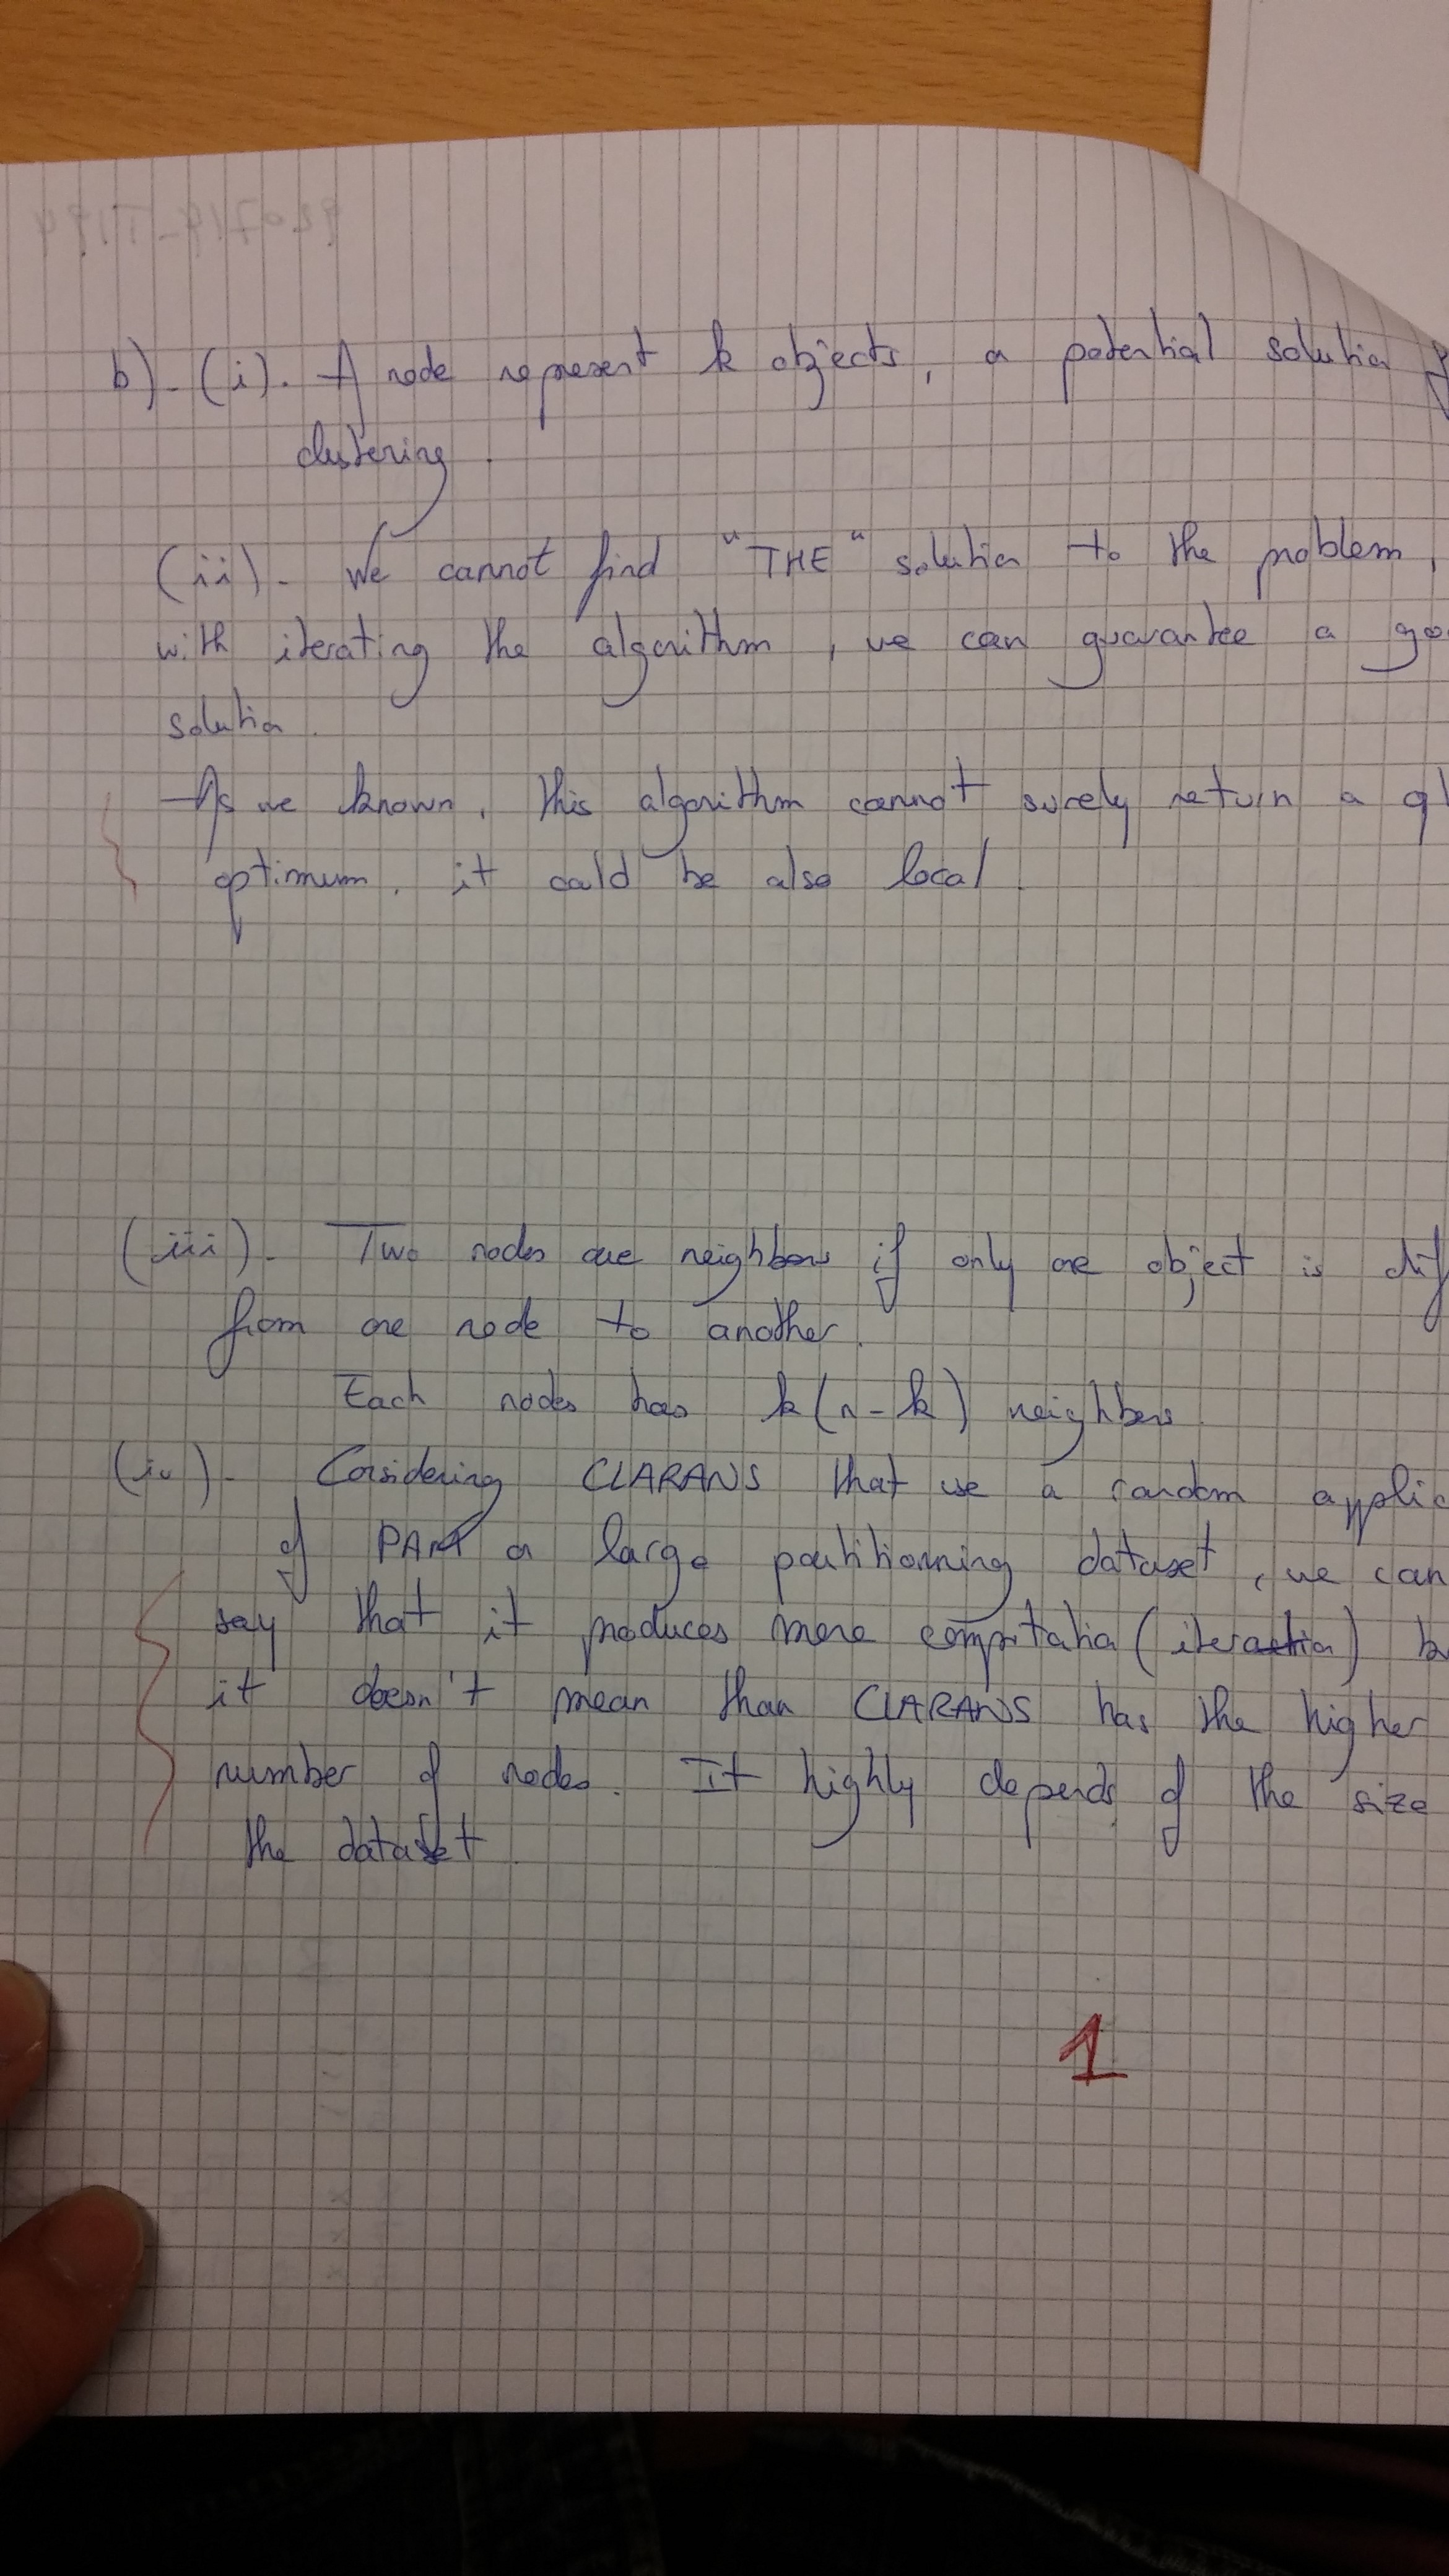 b)_ (i). A node represent k objects, a potential solution
clustering.
(ii)_ We cannot find "THE" solution to the problem,
with iterating the algorithm, we can guarantee a goo
solution.
As we known, this algorithm cannot surely return a gl
optimum, it could be also local.
(iii)_ Two nodes are neighbors if only one object is dif
from one node to another.
Each nodes has k(n-k) neighbors.
(iv)_ Considering CLARANS that use a random applic
of PAM a large partitionning dataset, we can
say that it produces more computation (iteration) b
it doesn't mean than CLARANS has the higher
number of nodes. It highly depends of the size
the dataset.
1